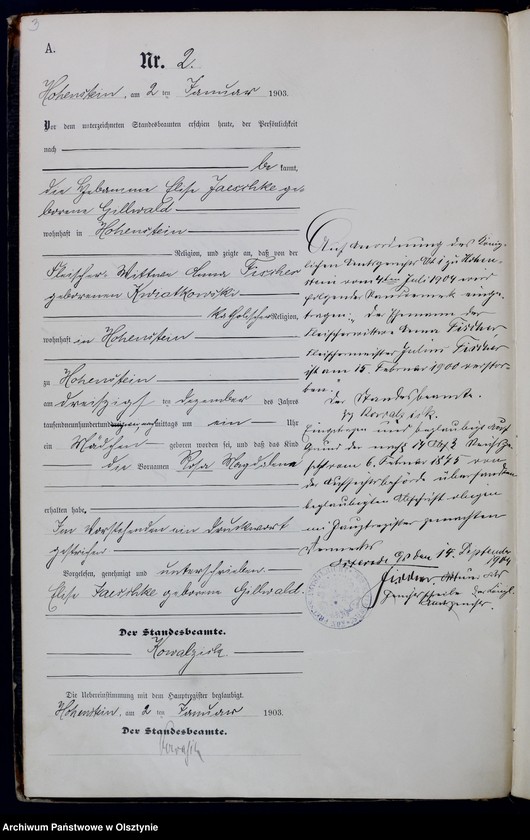 3
A.
Nr. 2.
Hohenstein, am 2 ten Januar 1903.
Vor dem unterzeichneten Standesbeamten erschien heute, der Persönlichkeit
nach
be kannt,
die Hebamme Elise Jaeschke ge-
borene Gillwald
wohnhaft in Hohenstein
Religion, und zeigte an, daß von der
Fleischer-Wittwe Anna Fischer
geborenen Kwiatkowski
katholischer Religion,
wohnhaft in Hohenstein
zu Hohenstein
am dreißigsten Dezember des Jahres
tausendneunhundert mittags um ein Uhr
ein Mädchen geboren worden sei, und daß das Kind
die Vornamen Rosa Magdalena
erhalten habe.
Im Vorstehenden ein Druckwort
gestrichen
Vorgelesen, genehmigt und unterschrieben
Elise Jaeschke geborene Gillwald.
Der Standesbeamte.
Kowalzick.
Die Uebereinstimmung mit dem Hauptregister beglaubigt.
Hohenstein, am 2 ten Januar 1903.
Der Standesbeamte.
Auf Anordnung des König-
lichen Amtsgerichts zu Hohen-
stein vom Juli 1904 wird
folgender Randvermerk einge-
tragen: der Ehemann der
Fleischerwittwe Anna Fischer
Fleischermeister Julius Fischer
ist am 15. Februar 1900 verstor-
ben.
Der Standesbeamte.
gez. Kowalzick.
Eingetragen und beglaubigt auf
Grund der nach § 14 Abs. 2 Reichsge-
setz vom 6. Februar 1875 von
der Aufsichtsbehörde übersandten
beglaubigten Abschrift obigen
im Hauptregister gemachten
Vermerks
Osterode den 14. September
1904
Gerichtsschreiber des Königl.
Amtsgerichts.
Archiwum Państwowe w Olsztynie